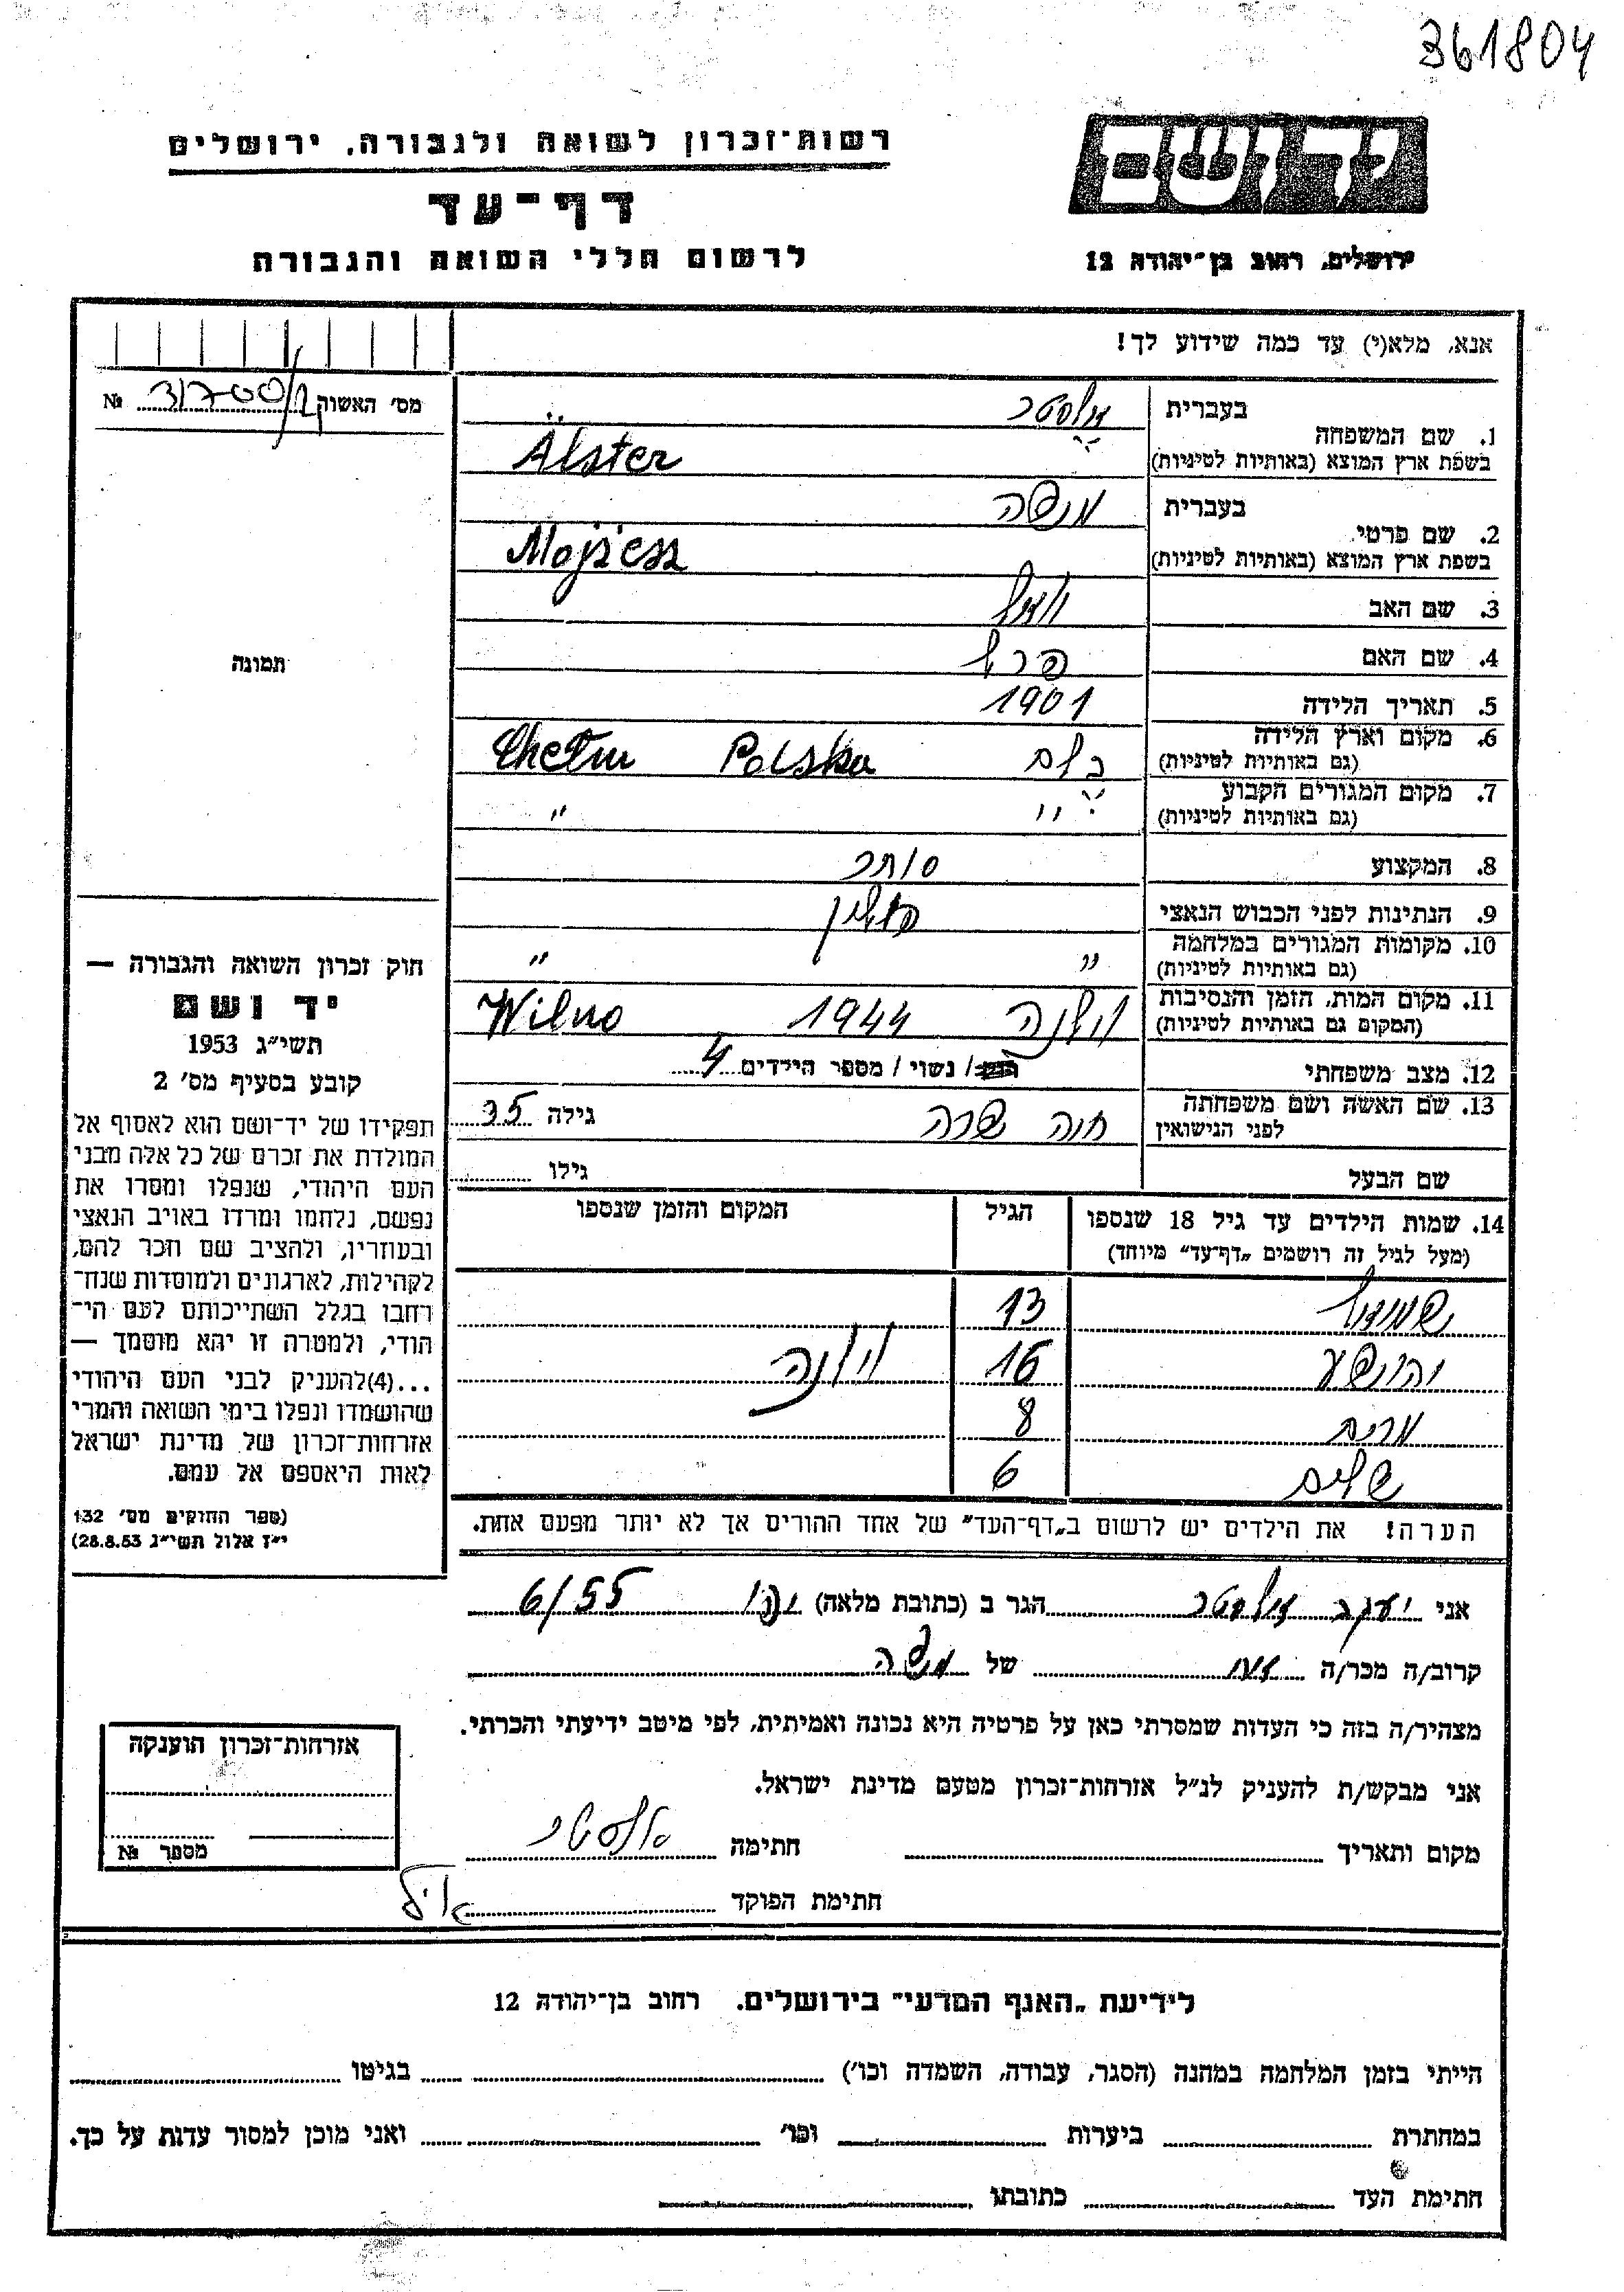 361804
רשות־זכרון לשואה ולגבורה, ירושלים
ידושם
דף־עד
לרשום חללי השואה והגבורה
ירושלים, רחוב בן־יהודה 12
אנא, מלא(י) עד כמה שידוע לך!
מס' האשוק №
1. שם המשפחה
בעברית אלסטר
בשפת ארץ המוצא (באותיות לטיניות) Älster
2. שם פרטי
בעברית משה
בשפת ארץ המוצא (באותיות לטיניות) Mojżesz
3. שם האב
4. שם האם פרל
5. תאריך הלידה 1901
6. מקום וארץ הלידה
(גם באותיות לטיניות) כלם Polska Chełm
7. מקום המגורים הקבוע
(גם באותיות לטיניות) " "
8. המקצוע סוחר
9. הנתינות לפני הכבוש הנאצי פולין
10. מקומות המגורים במלחמה
(גם באותיות לטיניות) " "
11. מקום המות, הזמן והנסיבות
(המקום גם באותיות לטיניות) וילנה 1944 Wilno
12. מצב משפחתי / נשוי / מספר הילדים 4
13. שם האשה ושם משפחתה
לפני הנישואין חוה שרה גילה 35
שם הבעל גילו
14. שמות הילדים עד גיל 18 שנספו הגיל המקום והזמן שנספו
(מעל לגיל זה רושמים „דף־עד" מיוחד)
שמואל 13
יהושע 16 וילנה
מרים 8
שלום 6
הערה! את הילדים יש לרשום ב„דף־העד" של אחד ההורים אך לא יותר מפעם אחת.
תמונה
חוק זכרון השואה והגבורה —
יד ושם
תשי"ג 1953
קובע בסעיף מס' 2
תפקידו של יד־ושם הוא לאסוף אל
המולדת את זכרם של כל אלה מבני
העם היהודי, שנפלו ומסרו את
נפשם, נלחמו ומרדו באויב הנאצי
ובעוזריו, ולהציב שם וזכר להם,
לקהילות, לארגונים ולמוסדות שנח־
רחבו בגלל השתייכותם לעם הי־
הודי, ולמטרה זו יהא מוסמך —
...(4) להעניק לבני העם היהודי
שהושמדו ונפלו בימי השואה והמרי
אזרחות־זכרון של מדינת ישראל
לאות היאספם אל עמם.
(ספר החוקים מס' 132
י"ז אלול תשי"ג 28.8.53)
אני יעקב אלסטר הגר ב (כתובת מלאה) 6/55
קרוב/ה מכר/ה אח של משה
מצהיר/ה בזה כי העדות שמסרתי כאן על פרטיה היא נכונה ואמיתית, לפי מיטב ידיעתי והכרתי.
אני מבקש/ת להעניק לנ"ל אזרחות־זכרון מטעם מדינת ישראל.
מקום ותאריך חתימה אלסטר
חתימת הפוקד
אזרחות־זכרון הוענקה
מספר №
לידיעת „האגף המדעי" בירושלים. רחוב בן־יהודה 12
הייתי בזמן המלחמה במחנה (הסגר, עבודה, השמדה וכו') בגיטו
במחתרת ביערות וכו' ואני מוכן למסור עדות על כך.
חתימת העד כתובתו